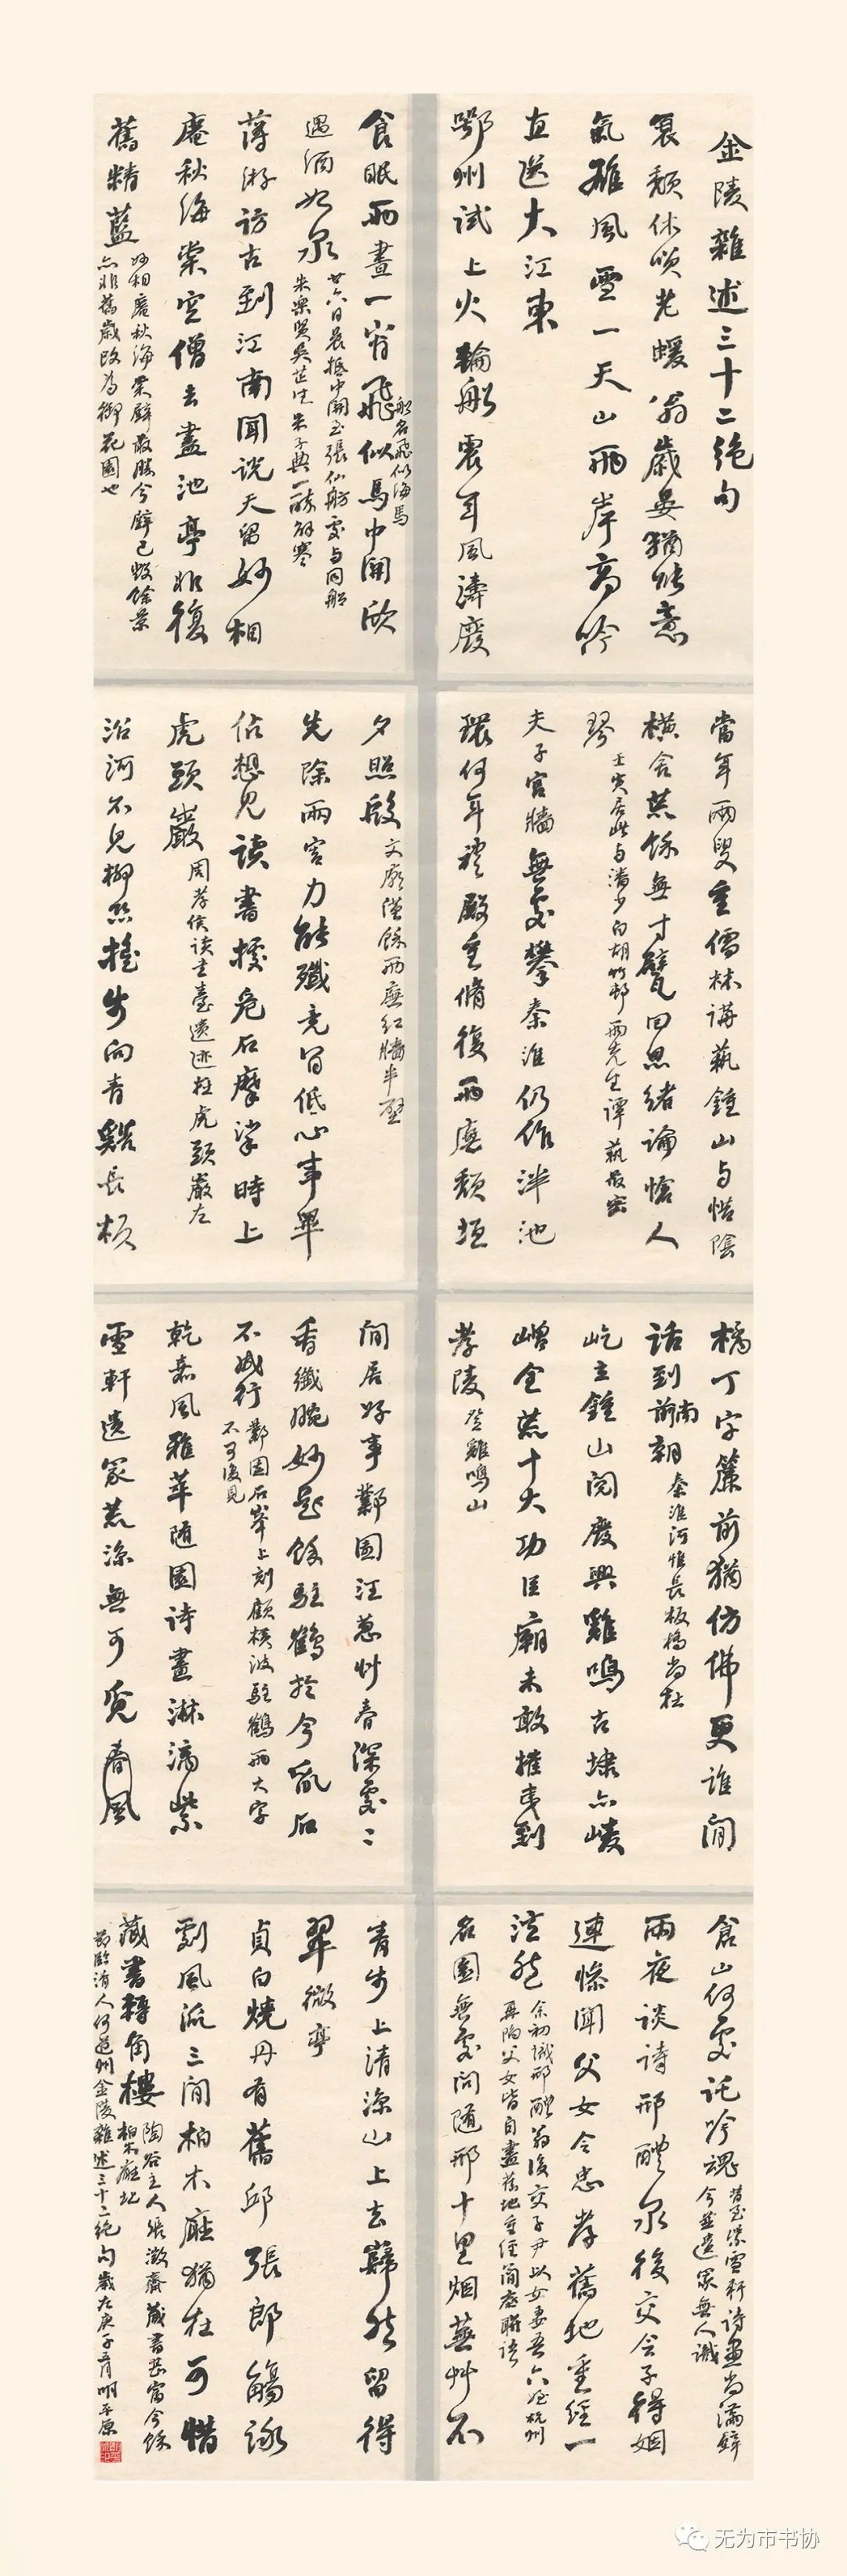 金陵雜述三十二絕句
衰頹休唉老暖翁歲晏猶能意
氣雄風雪一天山兩岸高吟
直送大江東
鄂州試上火輪船震耳風濤廢
食眠兩晝一宵飛似馬中關欣
船名飛似海馬
遇酒如泉
廿六日晨抵中關至張仙舫處与同船
朱樂賢吳芷生朱子典一醉解寒
薄游訪古到江南聞說天留妙相
庵秋海棠空僧去盡池亭非復
舊精藍
妙相庵秋海棠壁最勝今壁已毀餘景
亦非舊歲改為柳花園也
當年兩叟重儒林講藝鍾山与惜陰
橫舍荒餘無寸甓回思緒論愴人
琴
壬寅居此与潘少白胡竹邨兩先生譚藝最密
夫子宮牆無處攀秦淮仍作泮池
環何年禮殿重脩復兩廡頹垣
夕照殷
文廟僅餘兩廡紅牆半壁
先除兩害力能殲竟肯低心事畢
佔想見讀書擾危石摩挲時上
虎頭巖
周孝侯读書臺遗迹在虎頭巖左
沿河不見柳絲搖步向青谿長板
橋丁字簾前猶仿佛更誰閒
話到南朝
前
秦淮河惟長板橋尚在
屹立鍾山閱廢興雞鳴古埭亦崚
嶒全荒十大功臣廟未敢摧夷到
孝陵
登雞鳴山
閒居好事鄴園汪蔥艸春深處〻
香纖腕妙是餘駐鶴於今亂石
不成行
鄴園石峯上刻顧橫波駐鶴兩大字
不可復見
乾嘉風雅萃隨園诗畫淋漓紫
雪軒遺冢荒涼無可覓春風
倉山何處託吟魂
昔至紫雪軒诗畫尚滿壁
今并遺冢無人識
兩夜談诗邢醴泉後交令子得姻
連慘聞父女全忠孝舊地重經一
泫然
余初識邢醴翁後交子尹以女妻吾六姪杭州
再陷父女皆自盡舊地重經簡齋聯语
名園無處问隨邢十里烟蕪艸不
青步上清涼山上去巋然留得
翠微亭
貞白燒丹有舊邱張郎觴詠
劇風流三间柏木廳猶在可惜
藏書轉角樓
陶谷主人張澂齋藏書甚富今餘
柏木廳也
節臨清人何道州金陵雜述三十二絕句歲在庚子